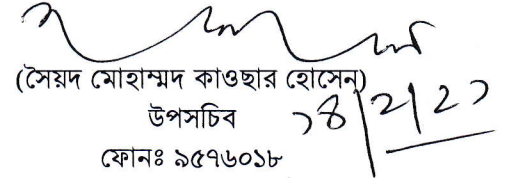 (সৈয়দ মোহাম্মদ কাওছার হোসেন)
উপসচিব
ফোনঃ ৯৫৭৬০১৮